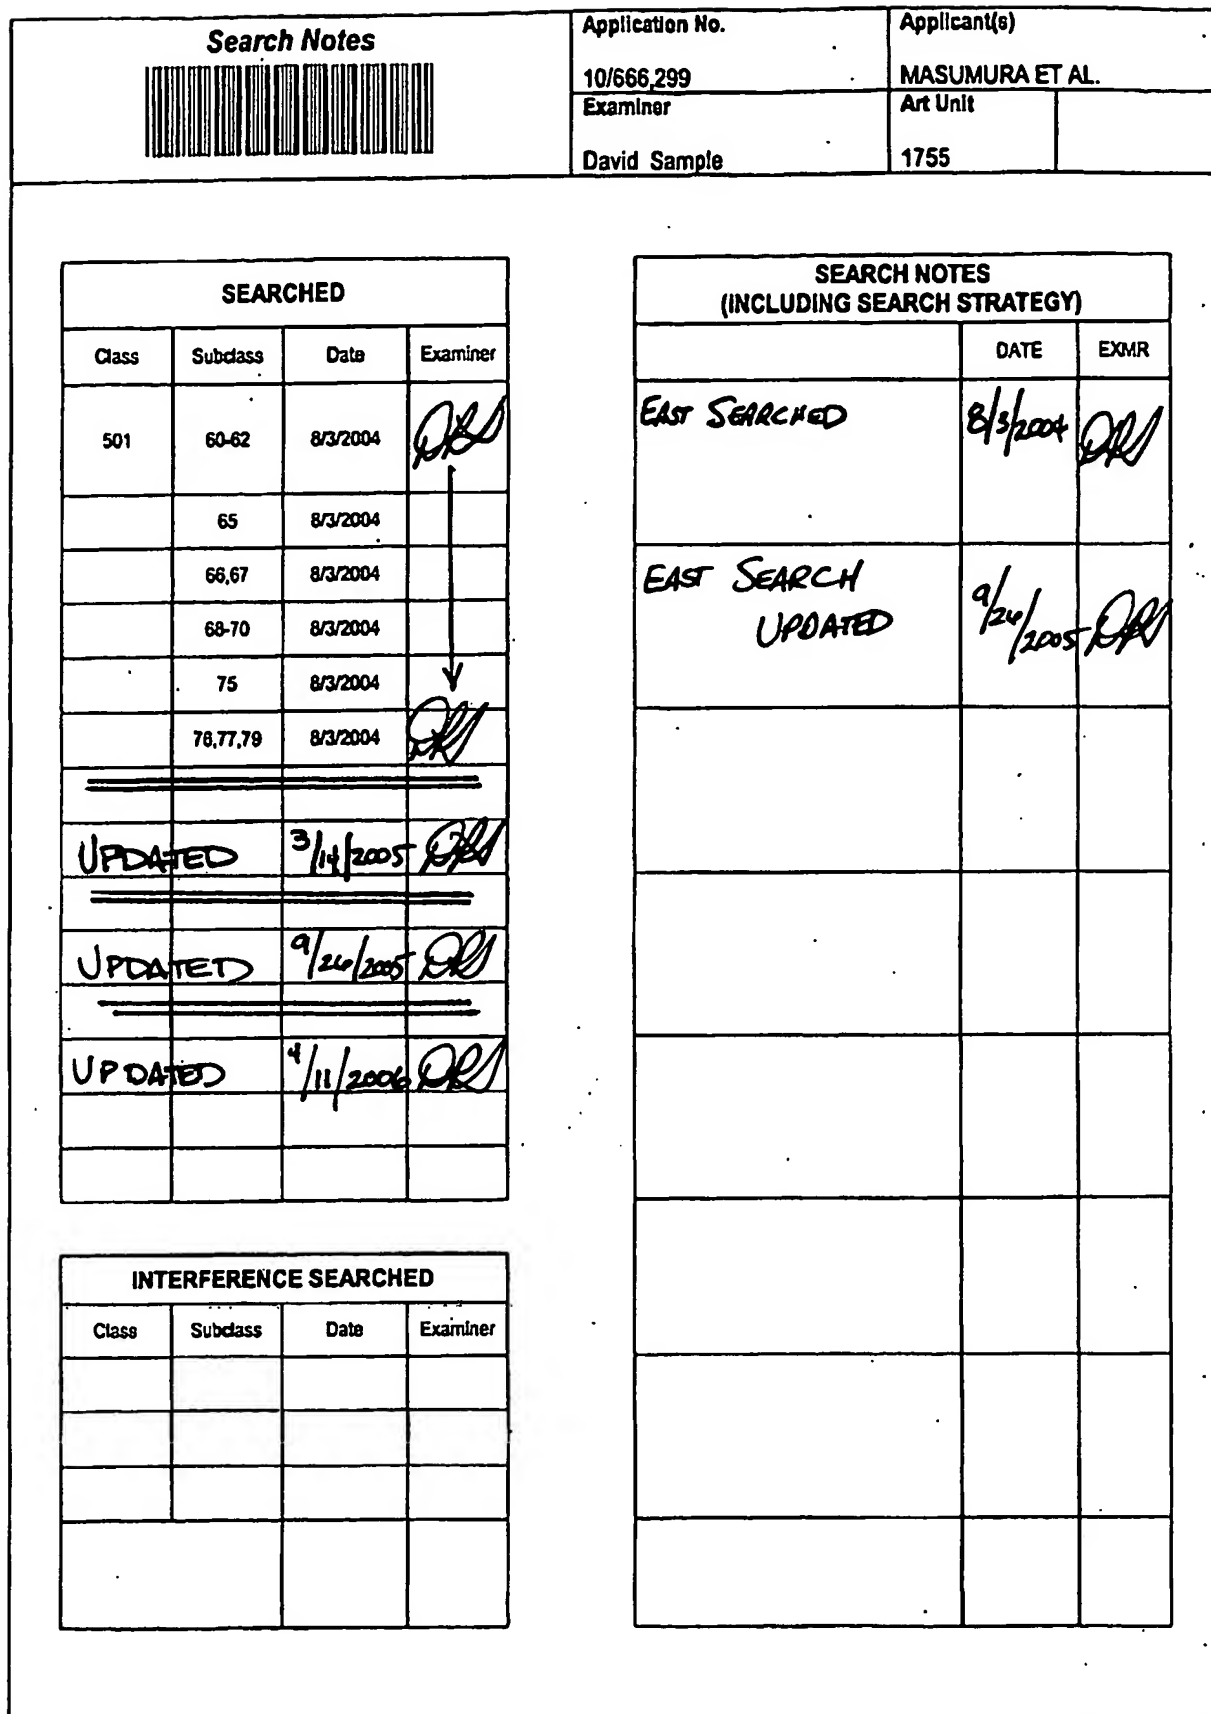 Search Notes
Application No.
10/666,299
Applicant(s)
MASUMURA ET AL.
Examiner
David Sample
Art Unit
1755
SEARCHED
Class Subclass Date Examiner
501 60-62 8/3/2004 DRS
65 8/3/2004
66,67 8/3/2004
68-70 8/3/2004
75 8/3/2004
76,77,79 8/3/2004 DRS
UPDATED 3/14/2005 DRS
UPDATED 9/26/2005 DRS
UPDATED 4/11/2006 DRS
INTERFERENCE SEARCHED
Class Subclass Date Examiner
SEARCH NOTES
(INCLUDING SEARCH STRATEGY)
DATE EXMR
EAST SEARCHED 8/3/2004 DRS
EAST SEARCH
UPDATED 9/26/2005 DRS